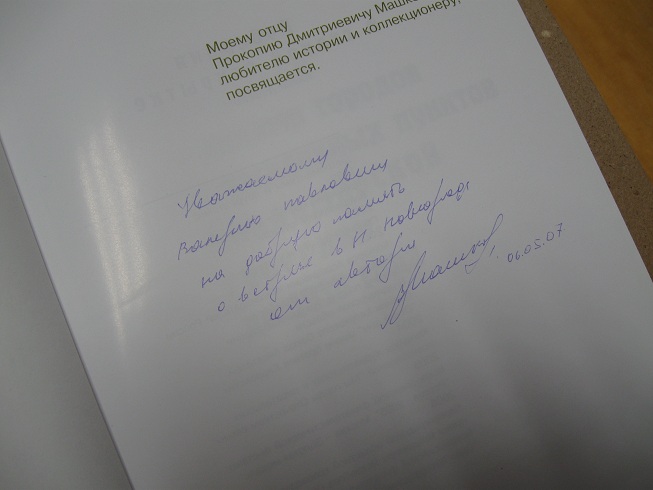 Моему отцу
Прокопию Дмитриевичу Машко
любителю истории и коллекционеру,
посвящается.
Уважаемому
Валерию Павловичу
на добрую память
о встрече в Н. Новгороде
от автора
06.05.07